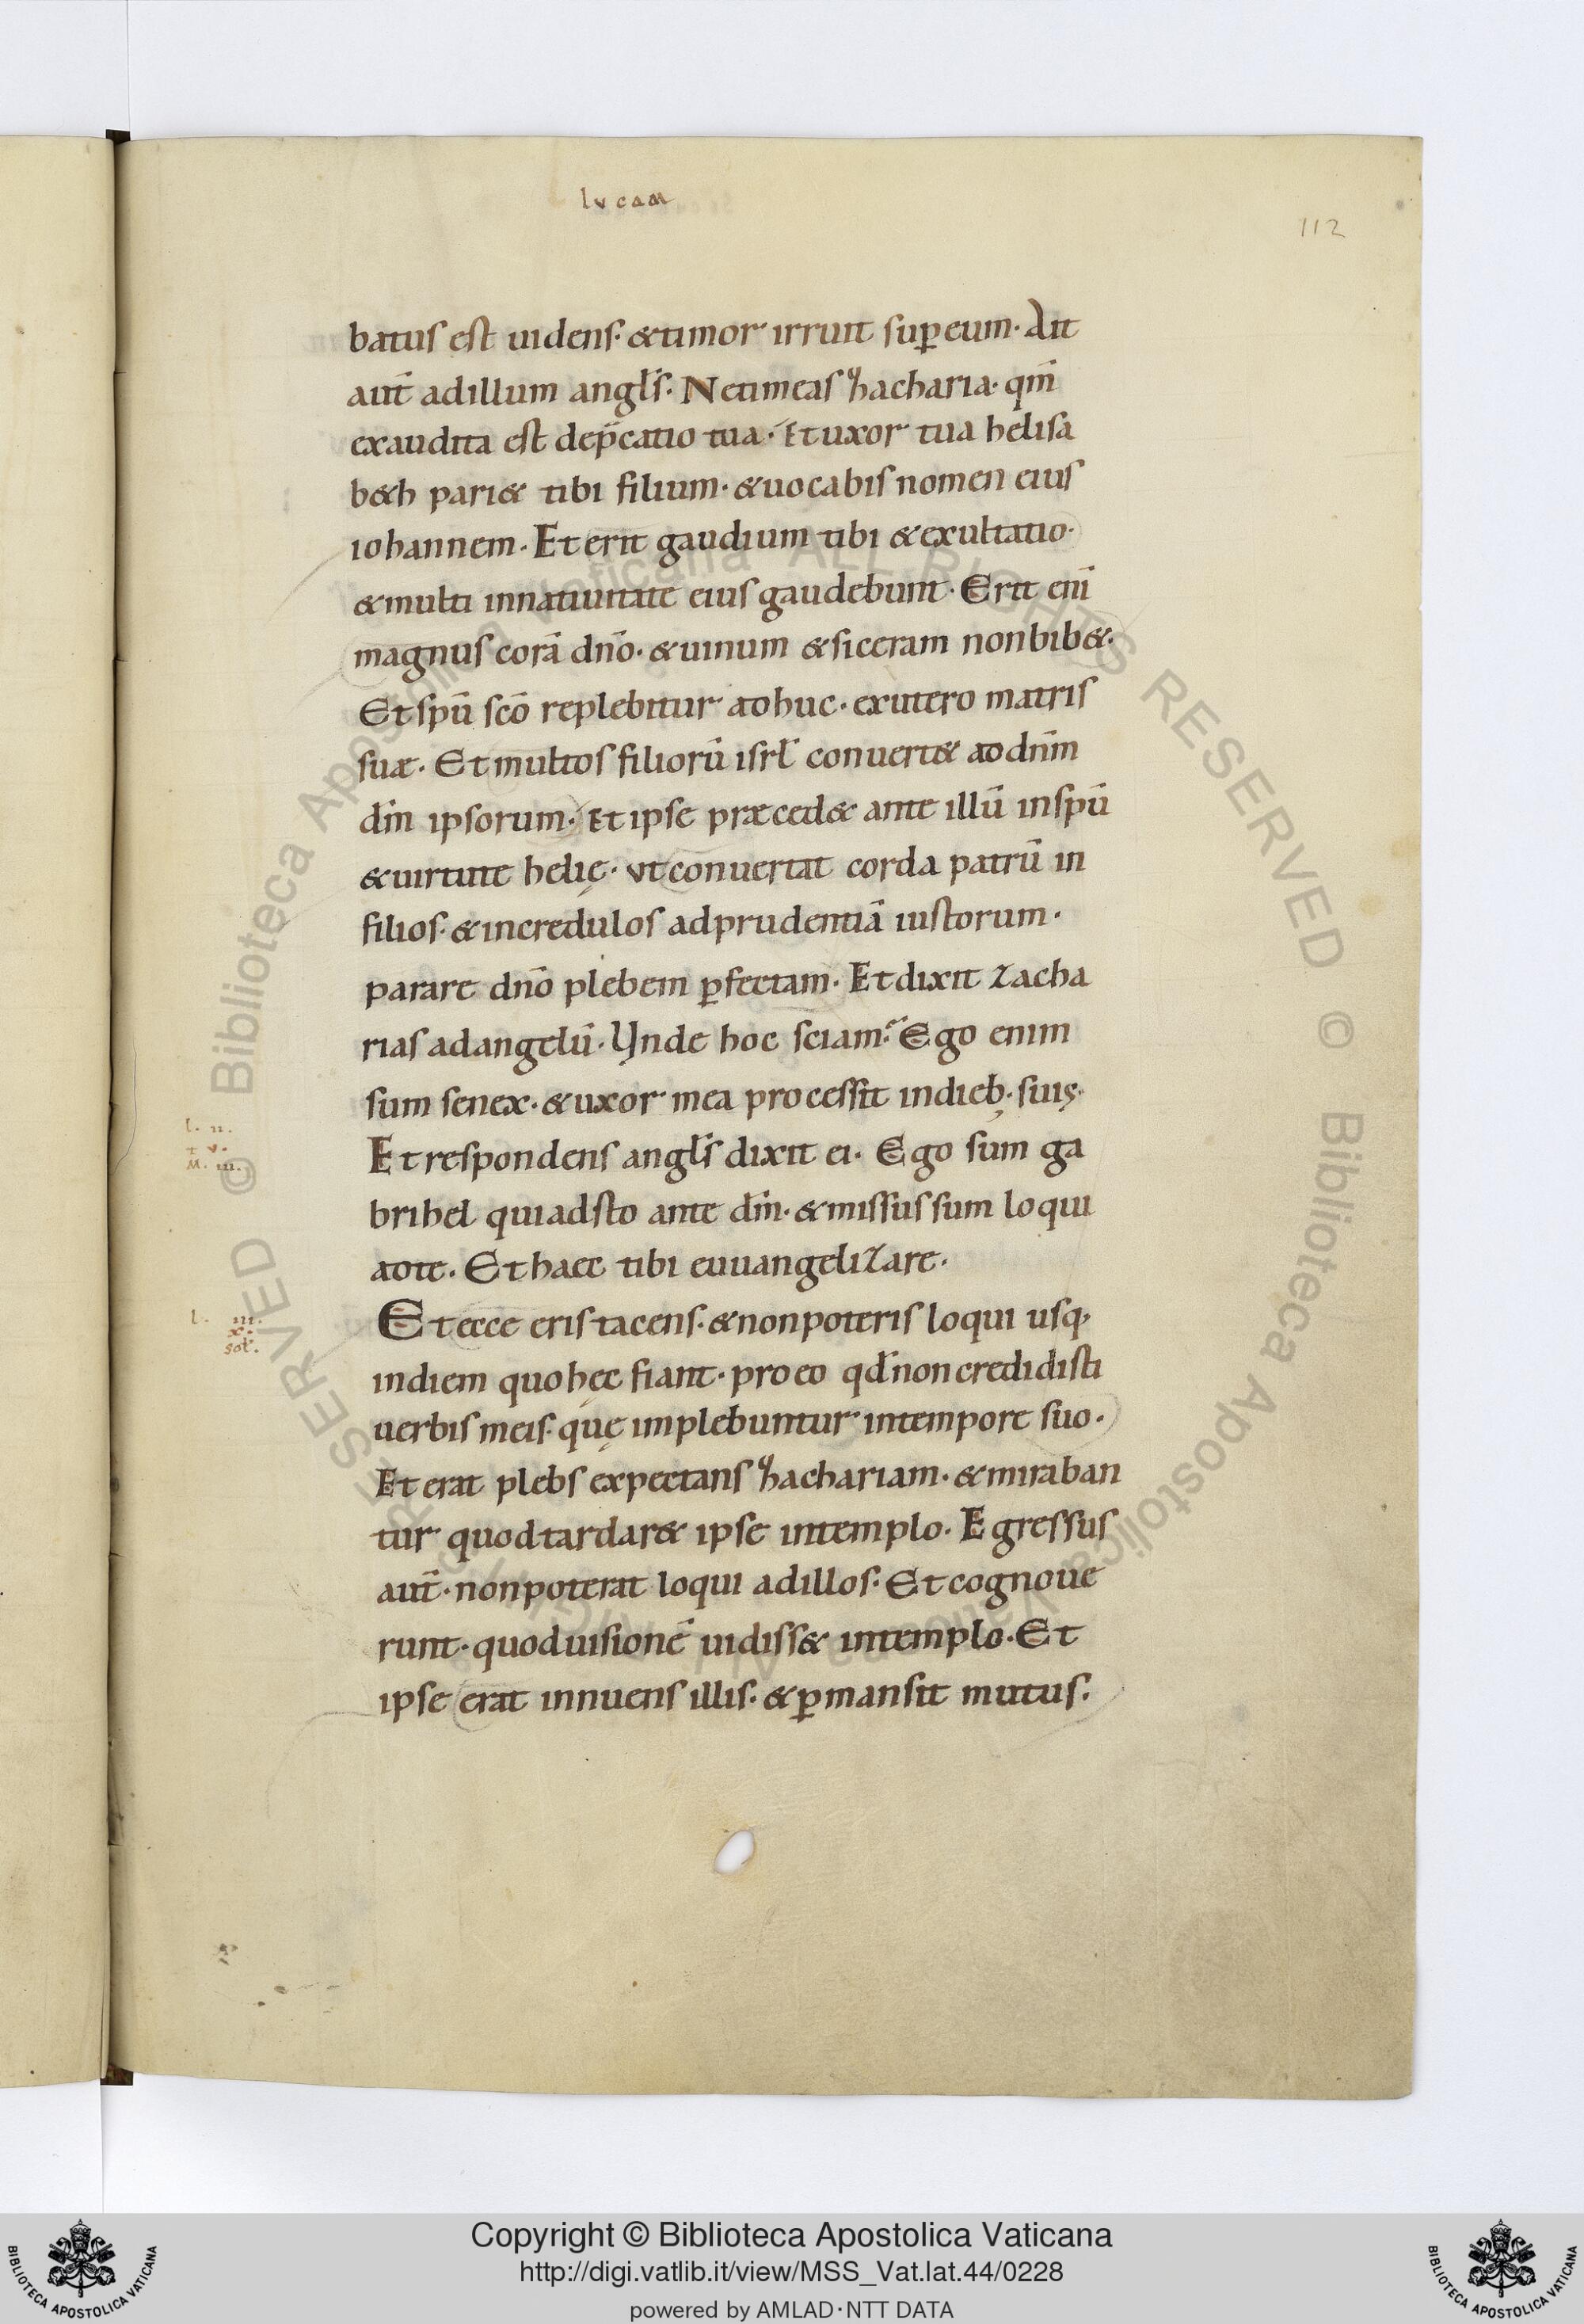 lucam
112
batus est uidens· & timor irruit sup̄ eum· Ait
aut̄ ad illum angl̄s· Ne timeas zhacharia· qm̄
exaudita est dep̄catio tua· Et uxor tua helisa
b&h pari& tibi filium· & uocabis nomen eius
iohannem· Et erit gaudium tibi & exultatio·
& multi in natiuitate eius gaudebunt· Erit eni̅
magnus corā dn̄o· & uinum & siceram non bib&·
Et spū scō replebitur adhuc· ex utero matris
suæ· Et multos filiorū isrl̄ conuert& ad dn̄m
dm̄ ipsorum· Et ipse præced& ante illū in spū
& uirtute helię· ut conuertat corda patrū in
filios· & incredulos ad prudentiā iustorum·
parare dn̄o plebem ꝑfectam· Et dixit zacha
rias ad angelū· Unde hoc sciam? Ego enim
sum senex· & uxor mea processit in dieb; suis·
l. ii.
t v.
M. iii.
Et respondens angl̄s dixit ei· Ego sum ga
brihel qui adsto ante dm̄· & missus sum loqui
ad te· Et haec tibi euuangelizare·
l. iii.
x.
sol̄.
Et ecce eris tacens· & non poteris loqui usq;
in diem quo hęc fiant· pro eo qd̄ non credidisti
uerbis meis· quę implebuntur in tempore suo·
Et erat plebs expectans zhachariam· & miraban
tur quod tardar& ipse in templo· Egressus
aut̄· non poterat loqui ad illos· Et cognoue
runt· quod uisionē uidiss& in templo· Et
ipse erat innuens illis· & ꝑmansit mutus·
© Biblioteca Apostolica Vaticana ALL RIGHTS RESERVED
© Biblioteca Apostolica Vaticana ALL RIGHTS RESERVED
Copyright © Biblioteca Apostolica Vaticana
http://digi.vatlib.it/view/MSS_Vat.lat.44/0228
powered by AMLAD·NTT DATA
BIBLIOTECA APOSTOLICA VATICANA
BIBLIOTECA APOSTOLICA VATICANA